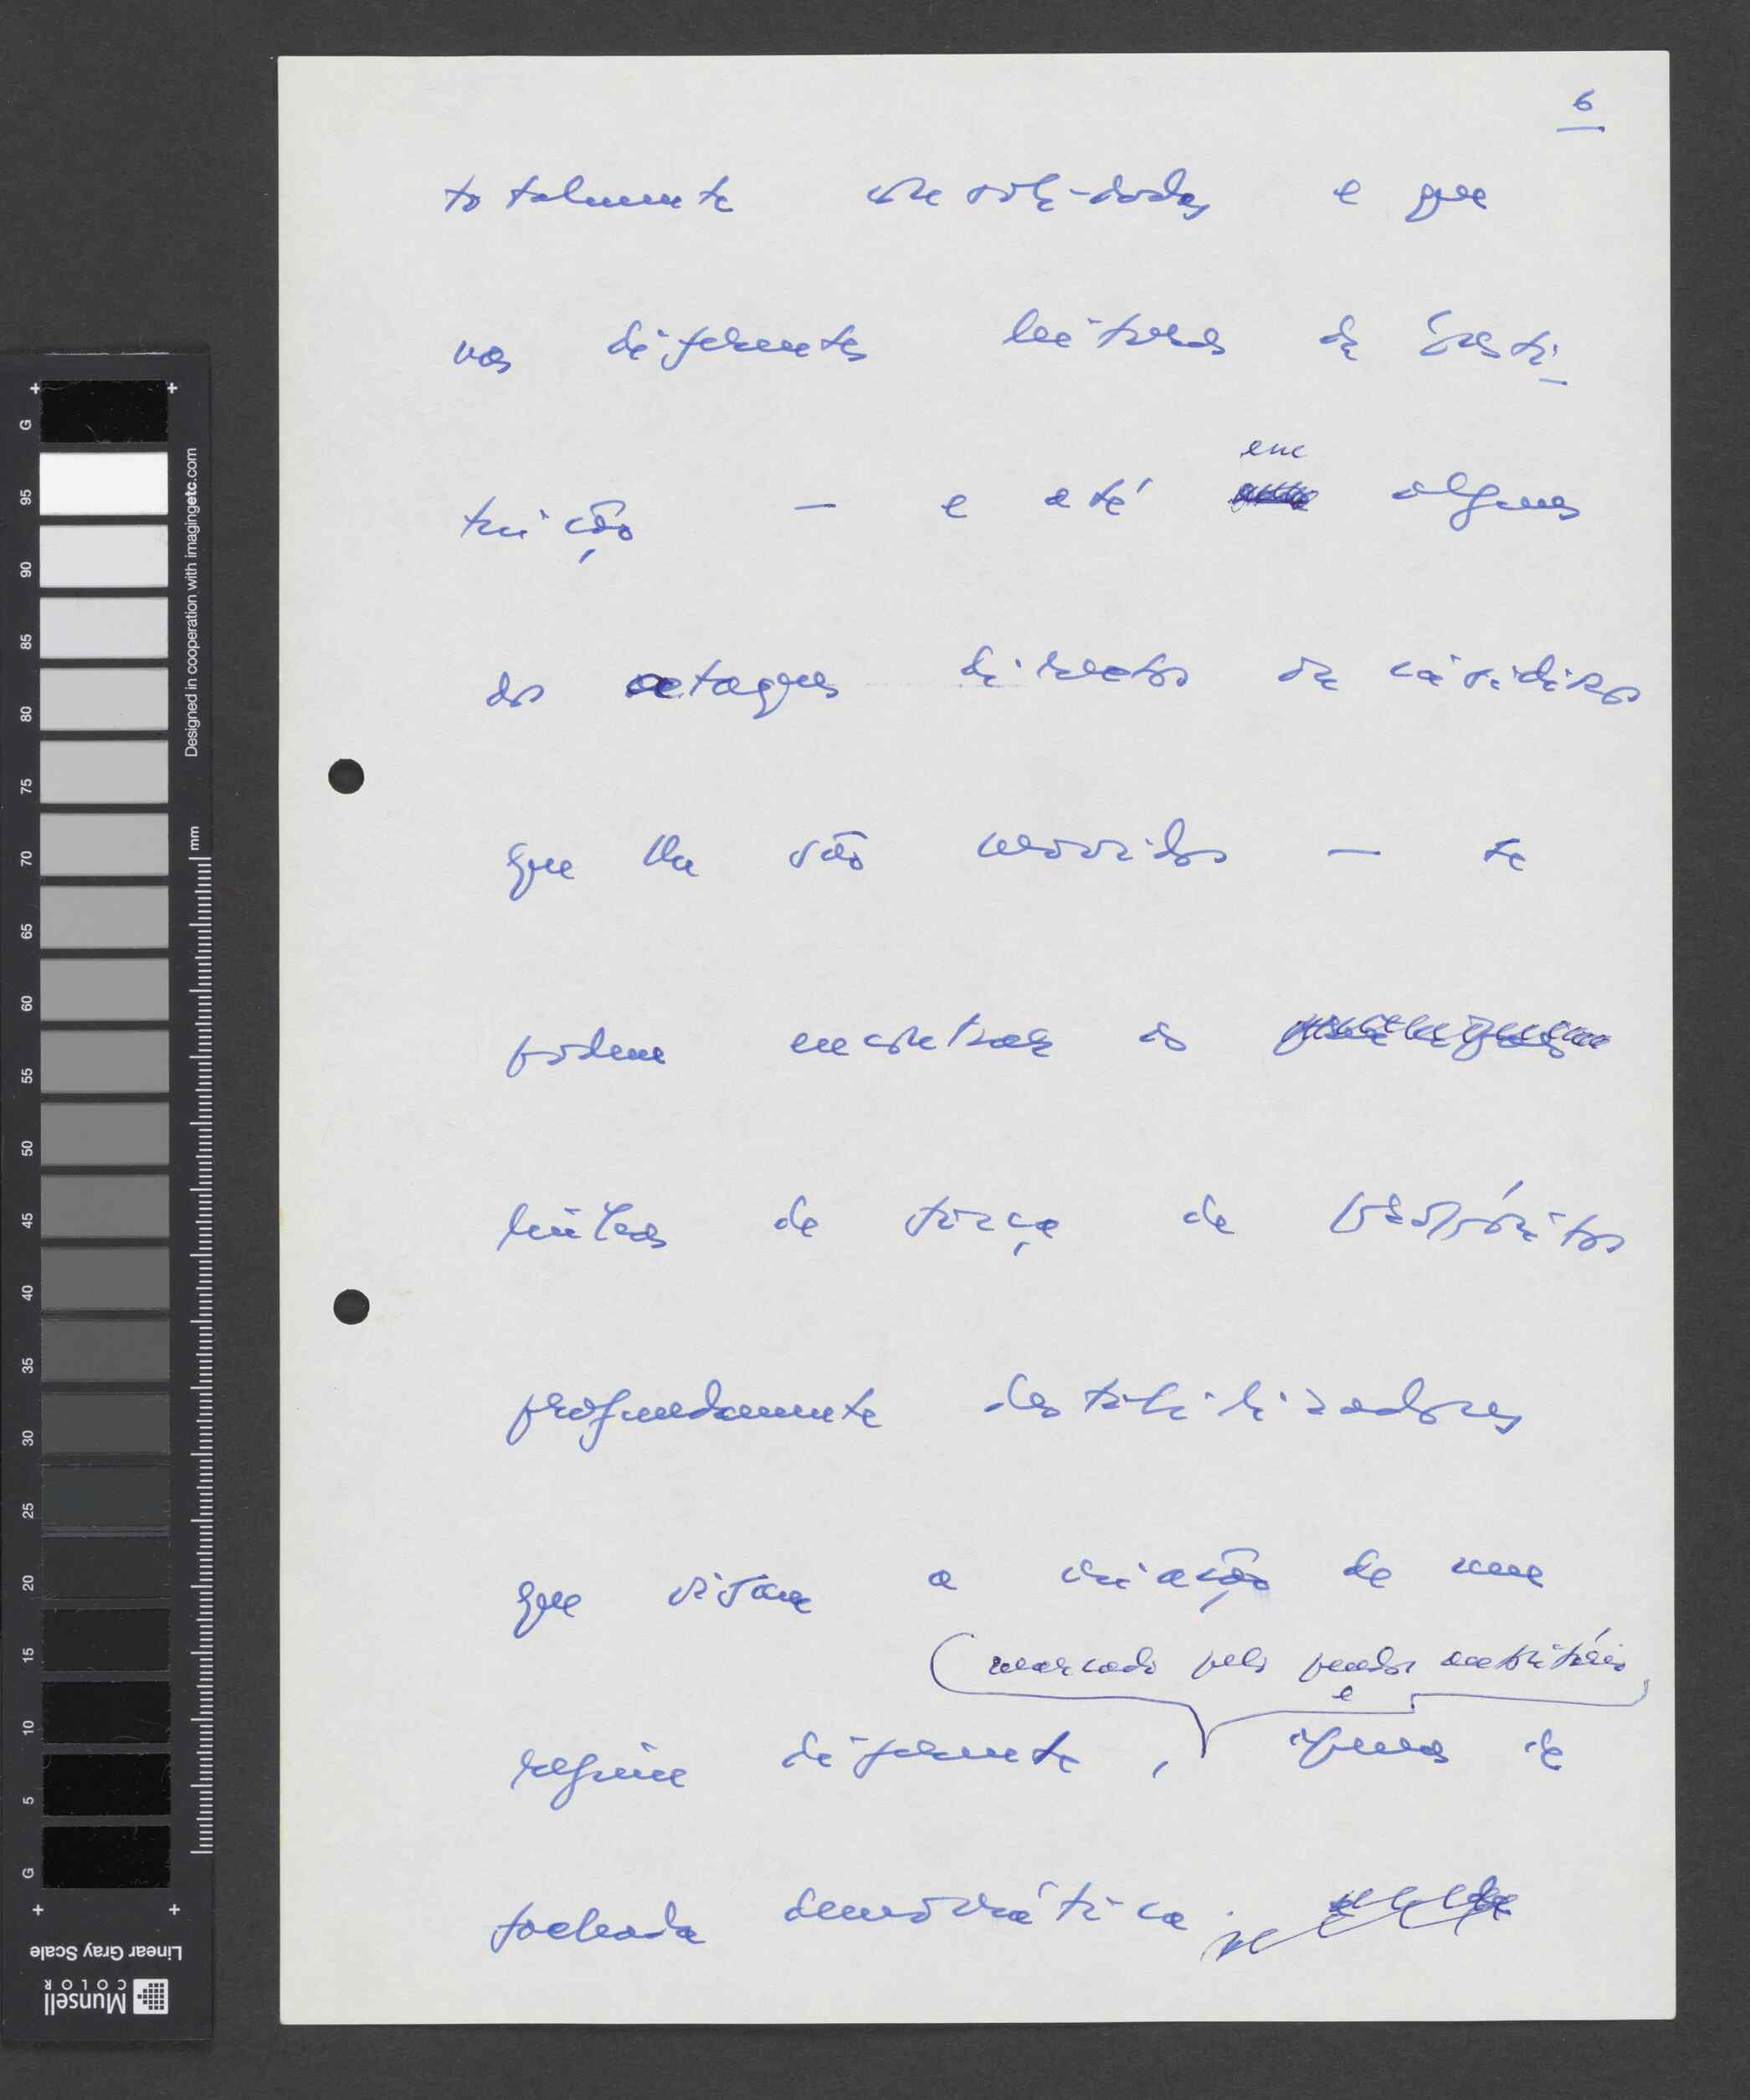 6
totalmente consolidadas e que
nas diferentes leituras da Insti-
tuição — e até em alguns
dos ataques directos ou insidiosos
que lhe são movidos — se
podem encontrar as
linhas de força de propósitos
profundamente destabilizadores
que visam a criação de um
marcado pelo pendor autoritário
e
regime diferente, apenas de
fachada democrática.
Designed in cooperation with imagingetc.com
mm
G
95
90
85
80
75
70
65
60
55
50
45
40
35
30
25
20
15
10
5
G
Linear Gray Scale
Munsell
COLOR